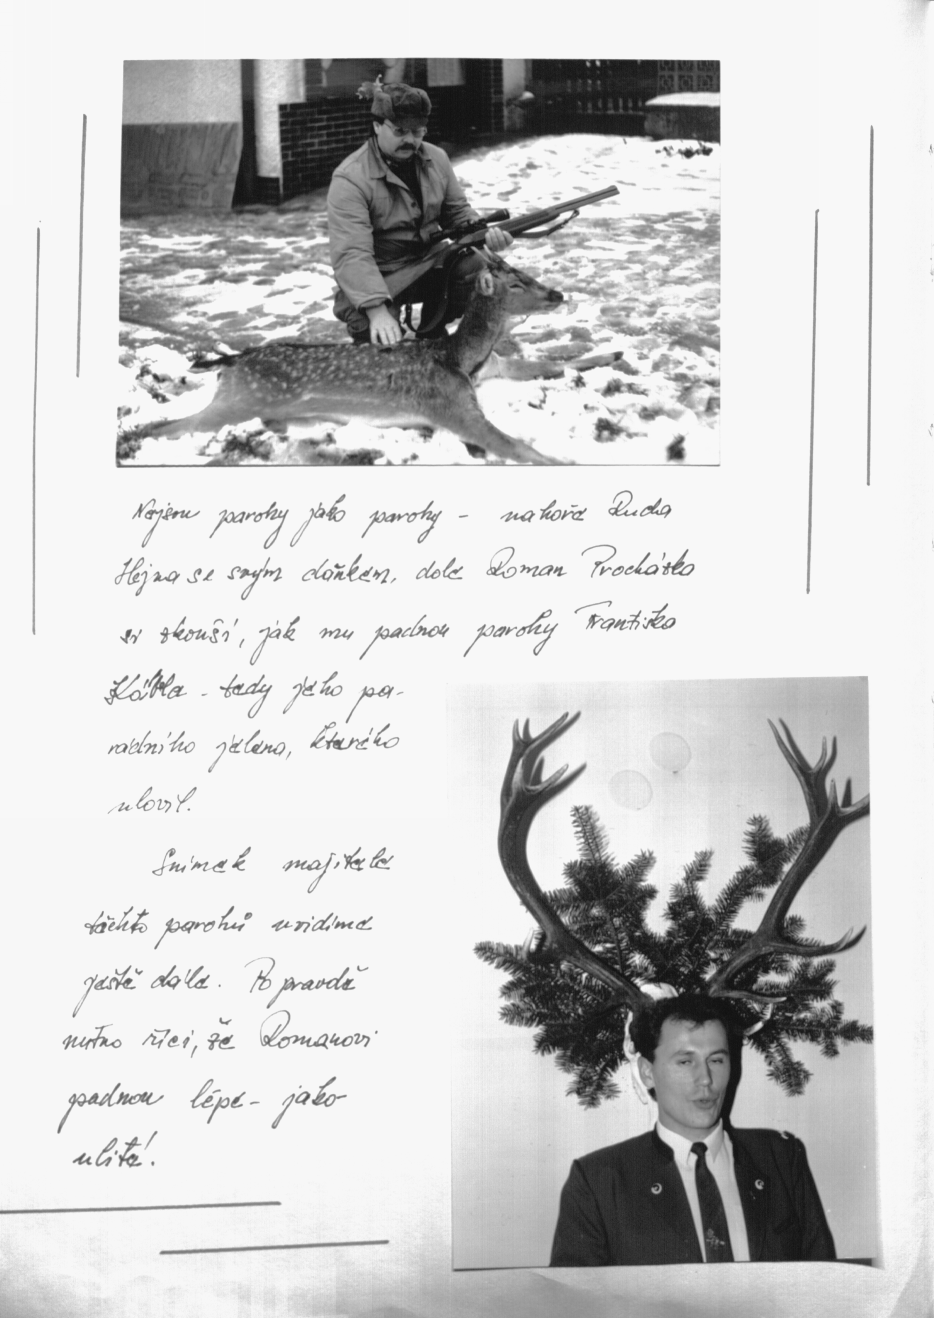 Nejsou parohy jako parohy – nahoře Ruda
Hejna se svým daňkem, dole Roman Procházka
si zkouší, jak mu padnou parohy Františka
– tedy jeho pa-
rádního jelena, kterého
ulovil.
Snímek majitele
těchto parohů uvidíme
ještě dále. Po pravdě
nutno říci, že Romanovi
padnou lépe – jako
ulité!